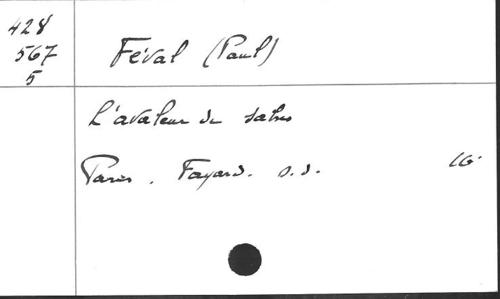 428
567
5
Féval (Paul)
L'avaleur de sabres
Paris. Fayard. s.d. 16°